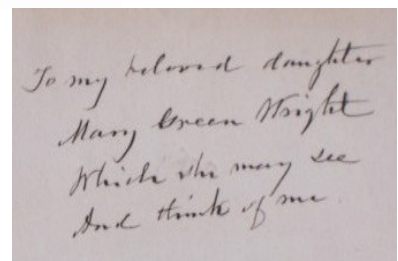 To my beloved daughter
Mary Green Wright
Which she may see
And think of me.